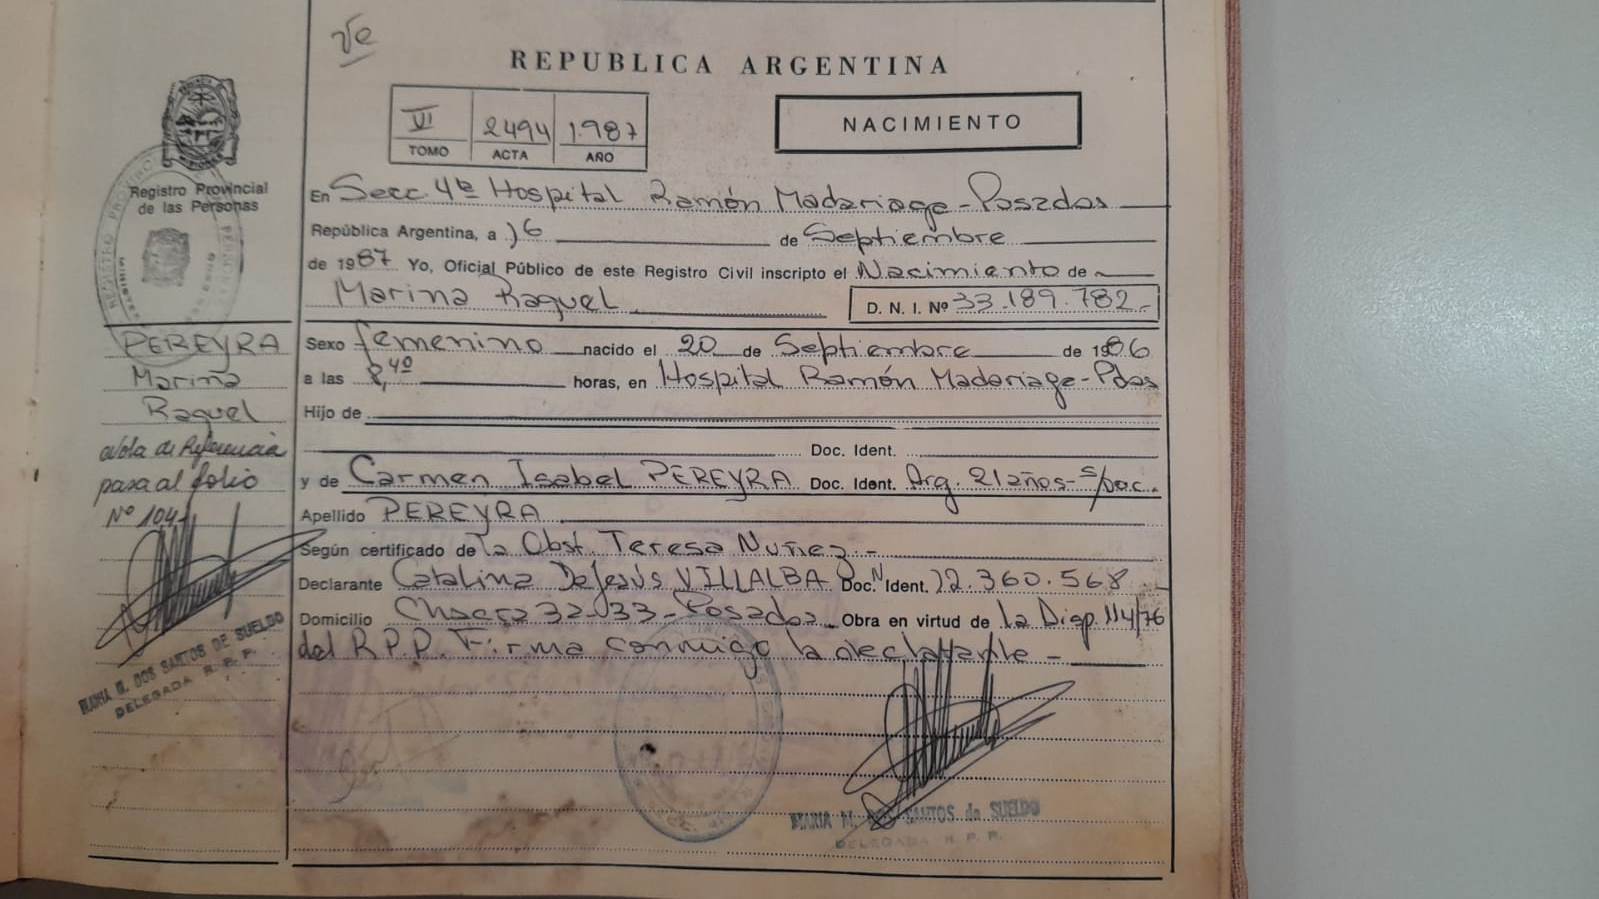 REPUBLICA ARGENTINA
VI 2494 1.987
TOMO ACTA AÑO
NACIMIENTO
Registro Provincial
de las Personas
PEREYRA
Marina
Raquel
Nota de Referencia
pasa al folio
Nº 104
MARIA M. DOS SANTOS DE SUELDO
DELEGADA R. P. P.
En Secc 4ta Hospital Ramón Madariaga - Posadas
República Argentina, a 16 de Septiembre
de 1987 Yo, Oficial Público de este Registro Civil inscripto el Nacimiento de
Marina Raquel D. N. I. Nº 33.189.782.-
Sexo femenino nacido el 20 de Septiembre de 1986
a las 8,40 horas, en Hospital Ramón Madariaga - Pdas
Hijo de
Doc. Ident.
y de Carmen Isabel PEREYRA Doc. Ident. Arg. 21 años - s/Doc.
Apellido PEREYRA
Según certificado de la Obst. Teresa Nuñez.-
Declarante Catalina De Jesús VILLALBA Doc. Ident. 12.360.568
Domicilio Chacra 32-33 - Posadas Obra en virtud de la Disp. 114/76
del R.P.P. Firma conmigo la declarante -
MARIA M. DOS SANTOS de SUELDO
DELEGADA R. P. P.